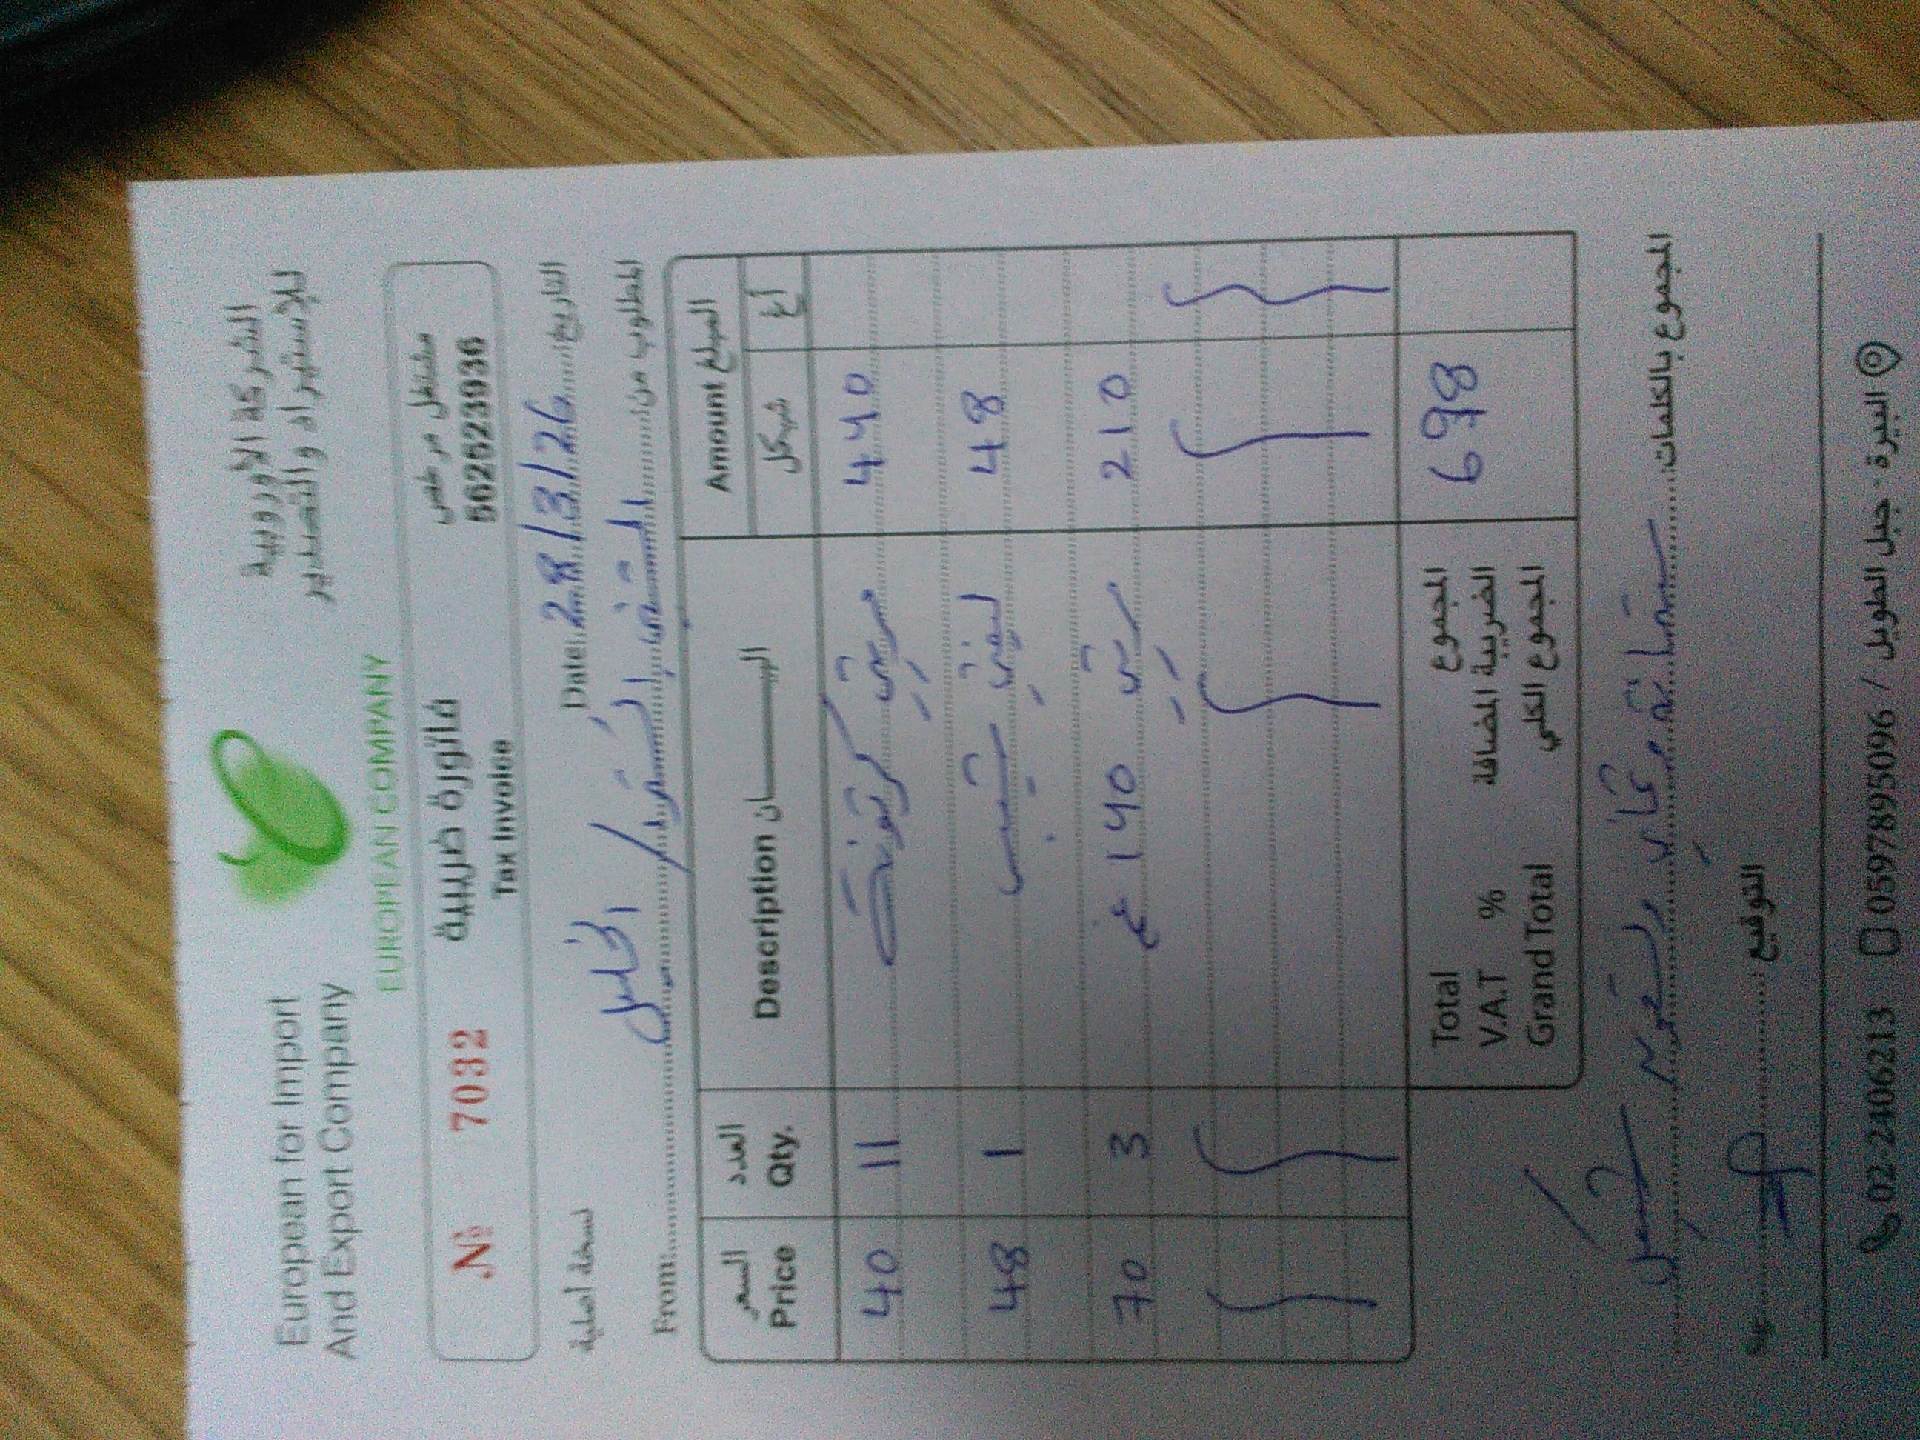 European for Import
And Export Company
الشركة الأوروبية
للإستيراد والتصدير
EUROPEAN COMPANY
№ 7032
فاتورة ضريبية
Tax Invoice
مشتغل مرخص
562523936
نسخة أصلية
Date: 28/3/26 التاريخ
From: المطلوب من: / الخليل
السعر العدد البيـــــــان Amount المبلغ
Price Qty. Description شيكل أغ
40 11 كرتونة 440
48 1 48
70 3 140 غم 210
Total المجموع 698
V.A.T % الضريبة المضافة
Grand Total المجموع الكلي
المجموع بالكلمات: ستمائة وثمانية وتسعون شيكل
التوقيع
02-2406213 0597895096 / البيرة - جبل الطويل